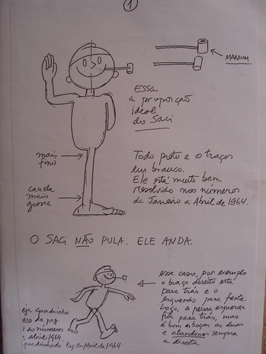 1
MARROM
ESSA
a proporção
ideal
do Saci
mais
fino
canela
mais
grossa
Todo preto e o traço
em branco.
Ele está muito bem
resolvido nos números
de Janeiro a Abril de 1964.
O SACI NÃO PULA. ELE ANDA.
esse caso, por exemplo
o braço direito está
para trás e o
esquerdo para frente.
Logo, a perna esquerda
para trás, mas
é bom esboçar as duas
e abandonar sempre a
direita.
quadrinho
1964